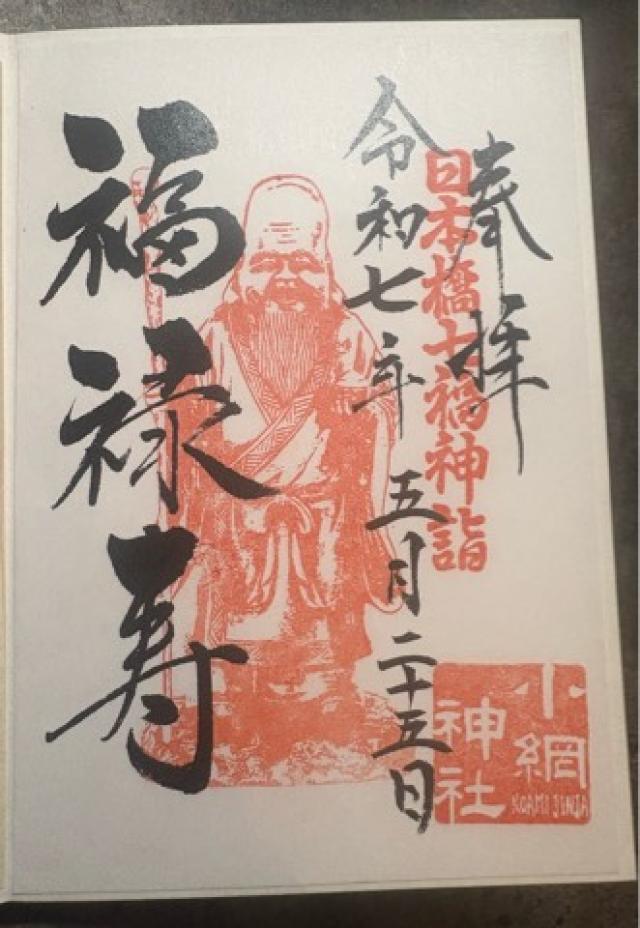 奉拝
日本橋七福神詣
令和七年五月二十五日
福禄寿
小網
神社
KOAMI JINJA